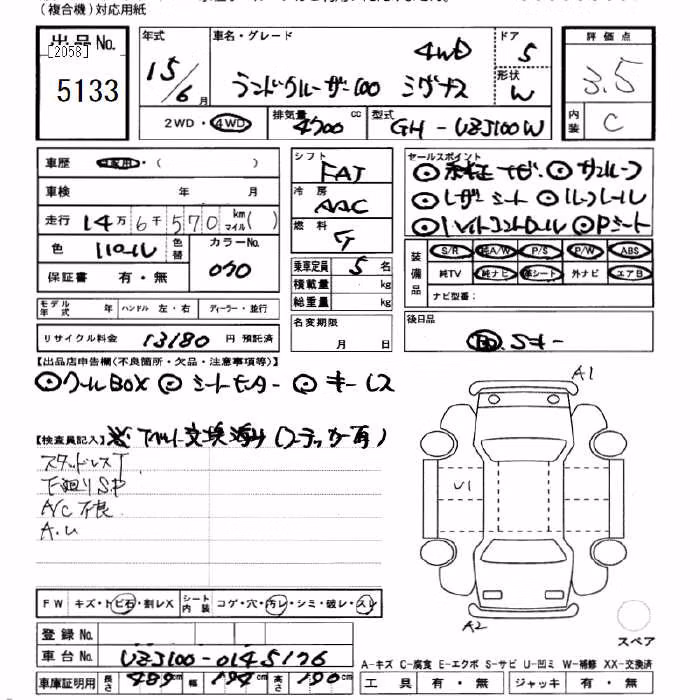 (複合機)対応用紙
出品No. 年式 車名・グレード 4WD ドア 5 評価点
[2058] 5133 15/6月 ランドクルーザー100 シグナス 形状 W 3.5
2WD・4WD 排気量 4700 cc 型式 GH-UZJ100W 内装 C
車歴 自家用・( ) シフト FAT セールスポイント
◎純正ナビ ◎サンルーフ
車検 年 月 冷房 AAC ◎レザーシート ◎ルーフレール
走行 14万6千570 km マイル( ) 燃料 G ◎ハイトコントロール ◎Pシート
色 パール 色替 カラーNo. 070 乗車定員 5名 装備品 S/R 純A/W P/S P/W ABS
保証書 有・無 積載量 kg 純TV 純ナビ 革シート 外ナビ エアB
総重量 kg ナビ型番:
モデル年式 年 ハンドル 左・右 ディーラー・並行 名変期限 月 日 後日品
リサイクル料金 13180 円 預託済 取、Sキー
【出品店申告欄(不良箇所・欠品・注意事項等)】
◎クールBOX ◎シートモーター ◎キーレス
A1
【検査員記入】 ※T/ベルト交換済み(ステッカー有)
スタッドレスT
下廻りSP
A/C不良
A.U
U1
FW キズ・トビ石・割レX シート内装 コゲ・穴・汚レ・シミ・破レ・スレ
登録No.
A2
スペア
車台No. UZJ100-0145176
A-キズ C-腐食 E-エクボ S-サビ U-凹ミ W-補修 XX-交換済
車庫証明用 長さ 489cm 幅 194cm 高さ 190cm 工具 有・無 ジャッキ 有・無